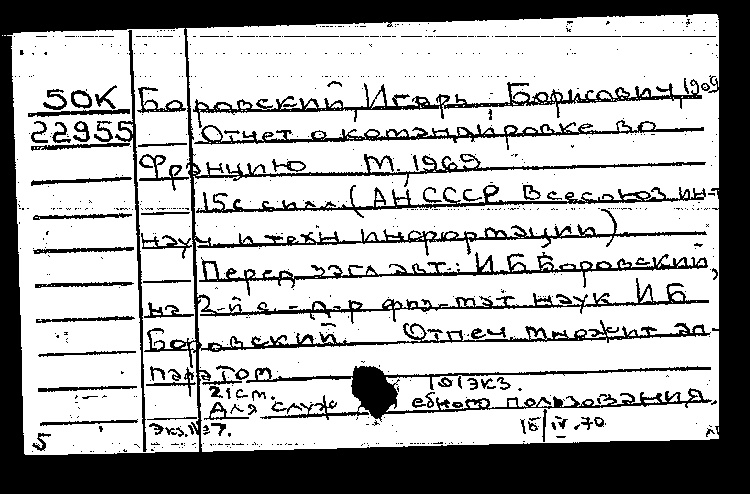 50К Боровский, Игорь Борисович, 1909
22955 Отчет о командировке во
Францию М., 1969
15с с илл. (АН СССР Всесоюз ин-т
науч и техн информации)
Перед загл авт.: И.Б Боровский,
на 2-й с. - д-р физ-мат наук И Б
Боровский. Отпеч. множит ап-
паратом.
21см. 101экз.
Для служебного пользования.
Экз.№37. 18/IV.70
5